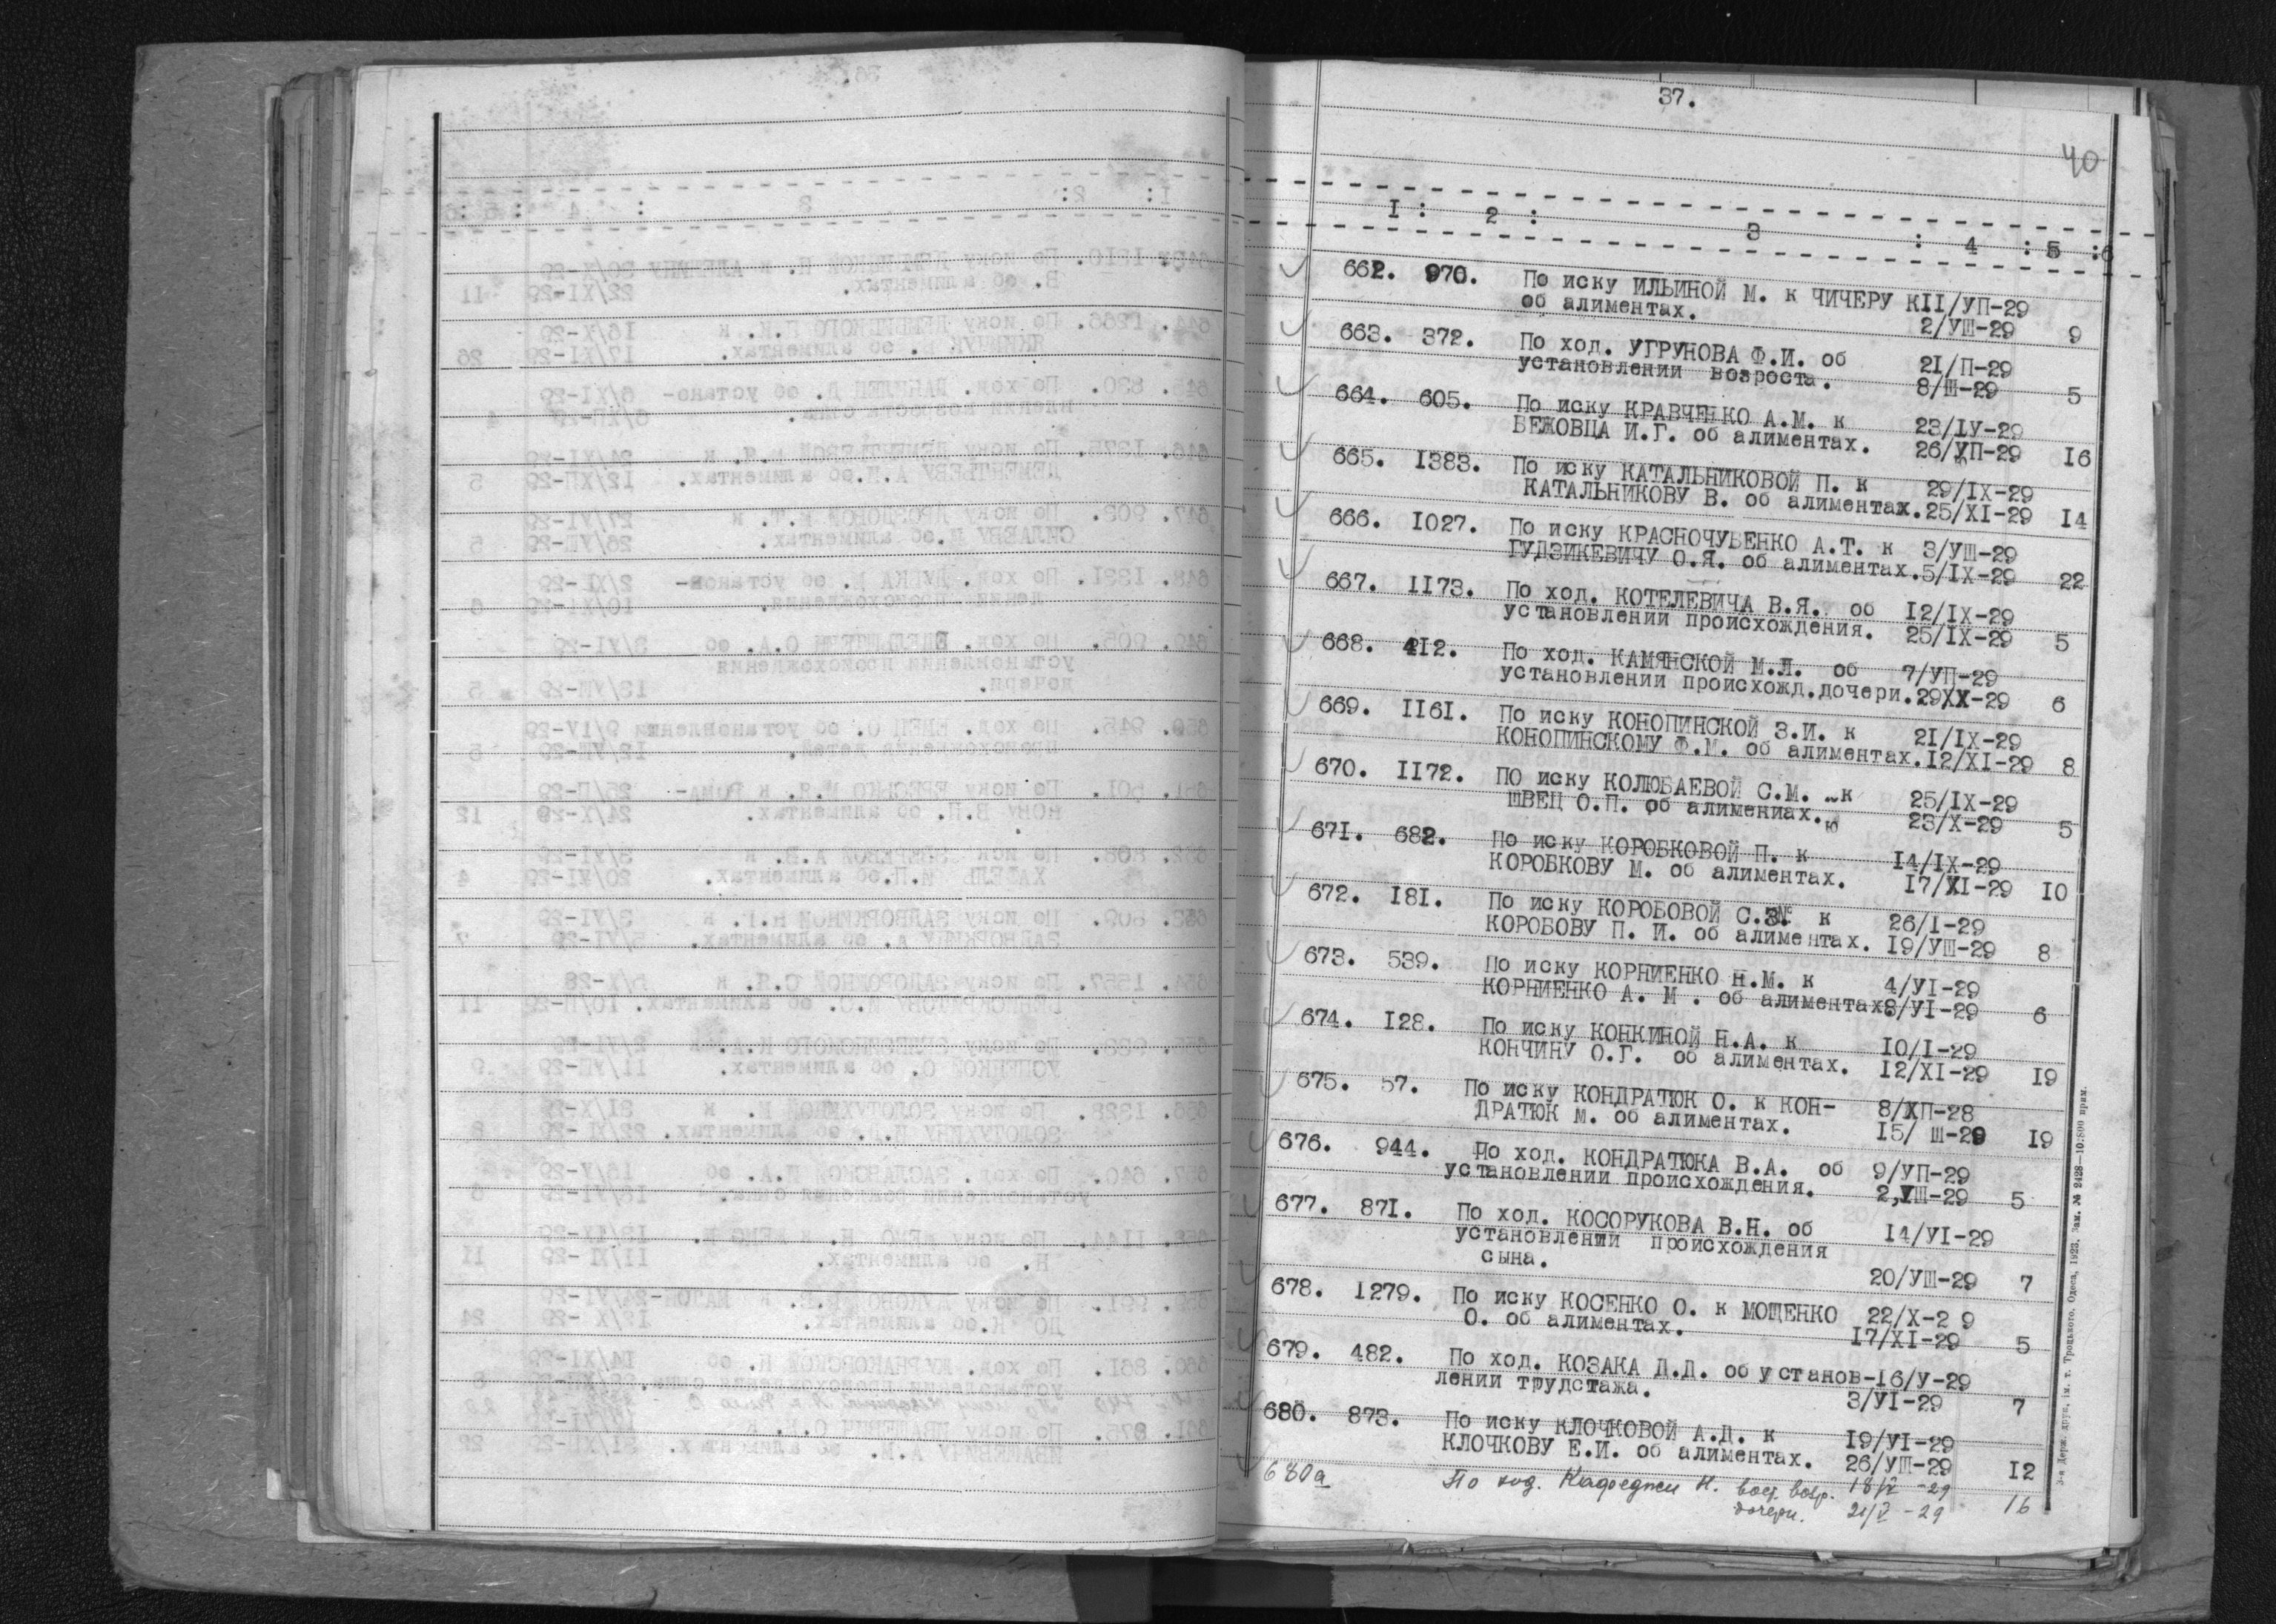 37.
40
I : 2 : 3 : 4 : 5 : 6
662. 970. По иску ИЛЬИНОЙ М. к ЧИЧЕРУ КII/УП-29
об алиментах. 2/УШ-29 9
663. 372. По ход. УГРУНОВА Ф.И. об 21/П-29
установлении возроста. 8/Ш-29 5
664. 605. По иску КРАВЧЕНКО А.М. к 23/IУ-29
БЕЖОВЦА И.Г. об алиментах. 26/УП-29 16
665. 1383. По иску КАТАЛЬНИКОВОЙ П. к 29/IX-29
КАТАЛЬНИКОВУ В. об алиментах. 25/XI-29 14
666. 1027. По иску КРАСНОЧУБЕНКО А.Т. к 3/УШ-29
ГУДЗИКЕВИЧУ О.Я. об алиментах. 5/IX-29 22
667. 1173. По ход. КОТЕЛЕВИЧА В.Я. об 12/IX-29
установлении происхождения. 25/IX-29 5
668. 412. По ход. КАМЯНСКОЙ М.Л. об 7/УП-29
установлении происхожд.дочери. 29XX-29 6
669. 1161. По иску КОНОПИНСКОЙ З.И. к 21/IX-29
КОНОПИНСКОМУ Ф.М. об алиментах. 12/XI-29 8
670. 1172. ПО иску КОЛЮБАЕВОЙ С.М. к 25/IX-29
ШВЕЦ О.П. об алимениах. 23/X-29 5
671. 682. По иску КОРОБКОВОЙ П. к 14/IX-29
КОРОБКОВУ М. об алиментах. 17/XI-29 10
672. 181. По иску КОРОБОВОЙ С. к 26/I-29
КОРОБОВУ П. И. об алиментах. 19/УШ-29 8
673. 539. По иску КОРНИЕНКО Н.М. к 4/УI-29
КОРНИЕНКО А. М . об алиментах8/УI-29 6
674. 128. По иску КОНКИНОЙ Н.А. к 10/I-29
КОНЧИНУ О.Г. об алиментах. 12/XI-29 19
675. 57. По иску КОНДРАТЮК О. к КОН- 8/XП-28
ДРАТЮК М. об алиментах. 15/ Ш-29 19
676. 944. По ход. КОНДРАТЮКА В.А. об 9/УП-29
установлении происхождения. 2,УШ-29 5
677. 871. По ход. КОСОРУКОВА В.Н. об 14/УI-29
установлении происхождения
сына.
20/УШ-29 7
678. 1279. По иску КОСЕНКО О. к МОЩЕНКО 22/X-2 9
О. об алиментах. 17/XI-29 5
679. 482. По ход. КОЗАКА Д.Д. об установ-16/У-29
лении трудстажа. 3/УI-29 7
680. 873. По иску КЛОЧКОВОЙ А.Д. к 19/УI-29
КЛОЧКОВУ Е.И. об алиментах. 26/УШ-29 12
680а По ход. Н. возр. -29
дочери. -29 16
3-я Держ. друк. ім. т. Троцького. Одеса, 1923. Зам. № 2428—10.800 прим.